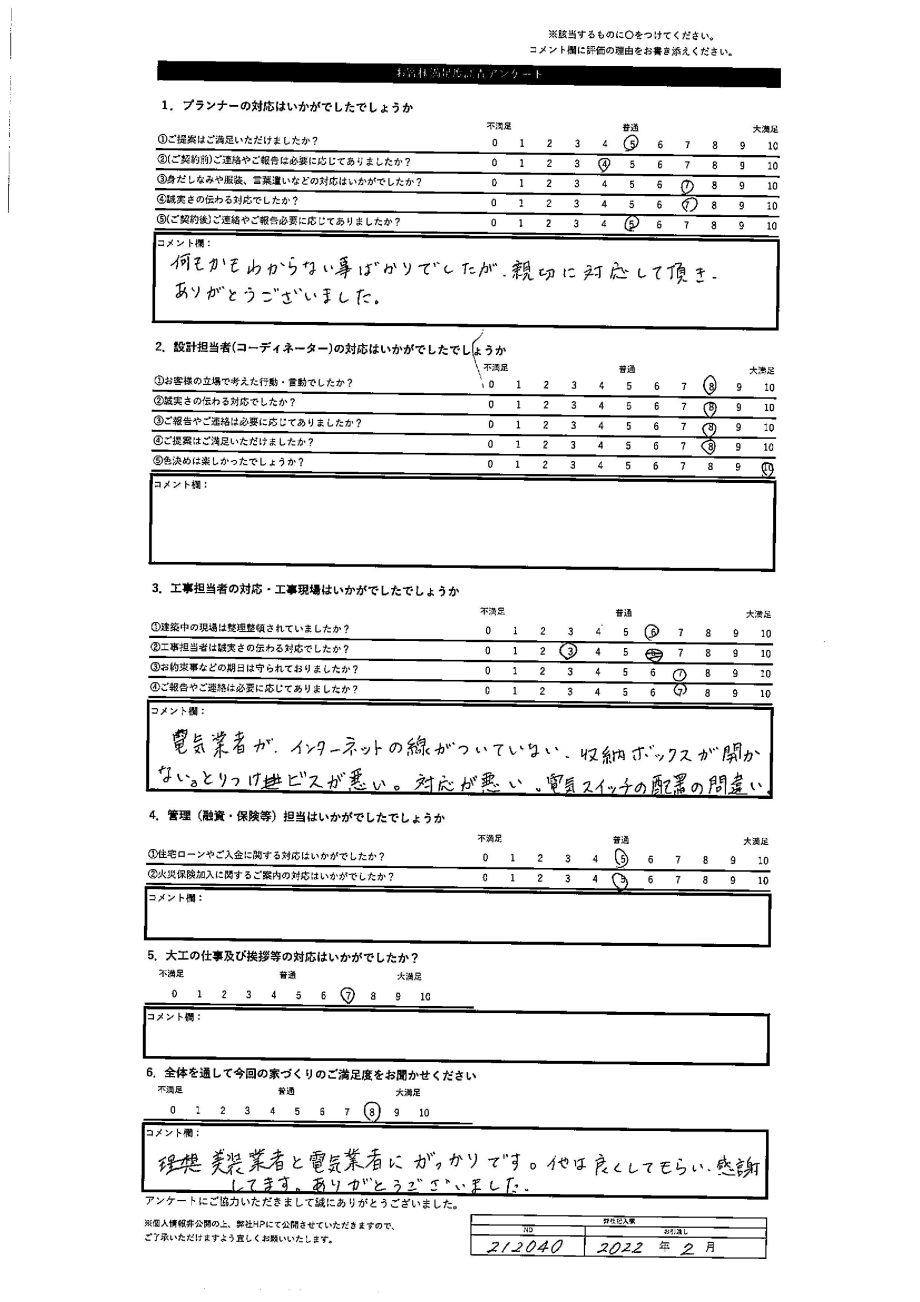 ※該当するものに〇をつけてください。
コメント欄に評価の理由をお書き添えください。
お客様満足度調査アンケート
1．プランナーの対応はいかがでしたでしょうか
不満足 普通 大満足
①ご提案はご満足いただけましたか？ 0 1 2 3 4 5 6 7 8 9 10
②(ご契約前)ご連絡やご報告は必要に応じてありましたか？ 0 1 2 3 4 5 6 7 8 9 10
③身だしなみや服装、言葉遣いなどの対応はいかがでしたか？ 0 1 2 3 4 5 6 7 8 9 10
④誠実さの伝わる対応でしたか？ 0 1 2 3 4 5 6 7 8 9 10
⑤(ご契約後)ご連絡やご報告必要に応じてありましたか？ 0 1 2 3 4 5 6 7 8 9 10
コメント欄：
何もかもわからない事ばかりでしたが、親切に対応して頂き、
ありがとうございました。
2．設計担当者(コーディネーター)の対応はいかがでしたでしょうか
不満足 普通 大満足
①お客様の立場で考えた行動・言動でしたか？ 0 1 2 3 4 5 6 7 8 9 10
②誠実さの伝わる対応でしたか？ 0 1 2 3 4 5 6 7 8 9 10
③ご報告やご連絡は必要に応じてありましたか？ 0 1 2 3 4 5 6 7 8 9 10
④ご提案はご満足いただけましたか？ 0 1 2 3 4 5 6 7 8 9 10
⑤色決めは楽しかったでしょうか？ 0 1 2 3 4 5 6 7 8 9 10
コメント欄：
3．工事担当者の対応・工事現場はいかがでしたでしょうか
不満足 普通 大満足
①建築中の現場は整理整頓されていましたか？ 0 1 2 3 4 5 6 7 8 9 10
②工事担当者は誠実さの伝わる対応でしたか？ 0 1 2 3 4 5 6 7 8 9 10
③お約束事などの期日は守られておりましたか？ 0 1 2 3 4 5 6 7 8 9 10
④ご報告やご連絡は必要に応じてありましたか？ 0 1 2 3 4 5 6 7 8 9 10
コメント欄：
電気業者が、インターネットの線がついていない、収納ボックスが開か
ない。とりつけビスが悪い。対応が悪い。電気スイッチの配置の間違い。
4．管理（融資・保険等）担当はいかがでしたでしょうか
不満足 普通 大満足
①住宅ローンやご入金に関する対応はいかがでしたか？ 0 1 2 3 4 5 6 7 8 9 10
②火災保険加入に関するご案内の対応はいかがでしたか？ 0 1 2 3 4 5 6 7 8 9 10
コメント欄：
5．大工の仕事及び挨拶等の対応はいかがでしたか？
不満足 普通 大満足
0 1 2 3 4 5 6 7 8 9 10
コメント欄：
6．全体を通して今回の家づくりのご満足度をお聞かせください
不満足 普通 大満足
0 1 2 3 4 5 6 7 8 9 10
コメント欄：
美装業者と電気業者にがっかりです。他は良くしてもらい、感謝
してます。ありがとうございました。
アンケートにご協力いただきまして誠にありがとうございました。
※個人情報非公開の上、弊社HPにて公開させていただきますので、
ご了承いただけますよう宜しくお願いいたします。
弊社記入欄
NO お引渡し
212040 2022 年 2 月